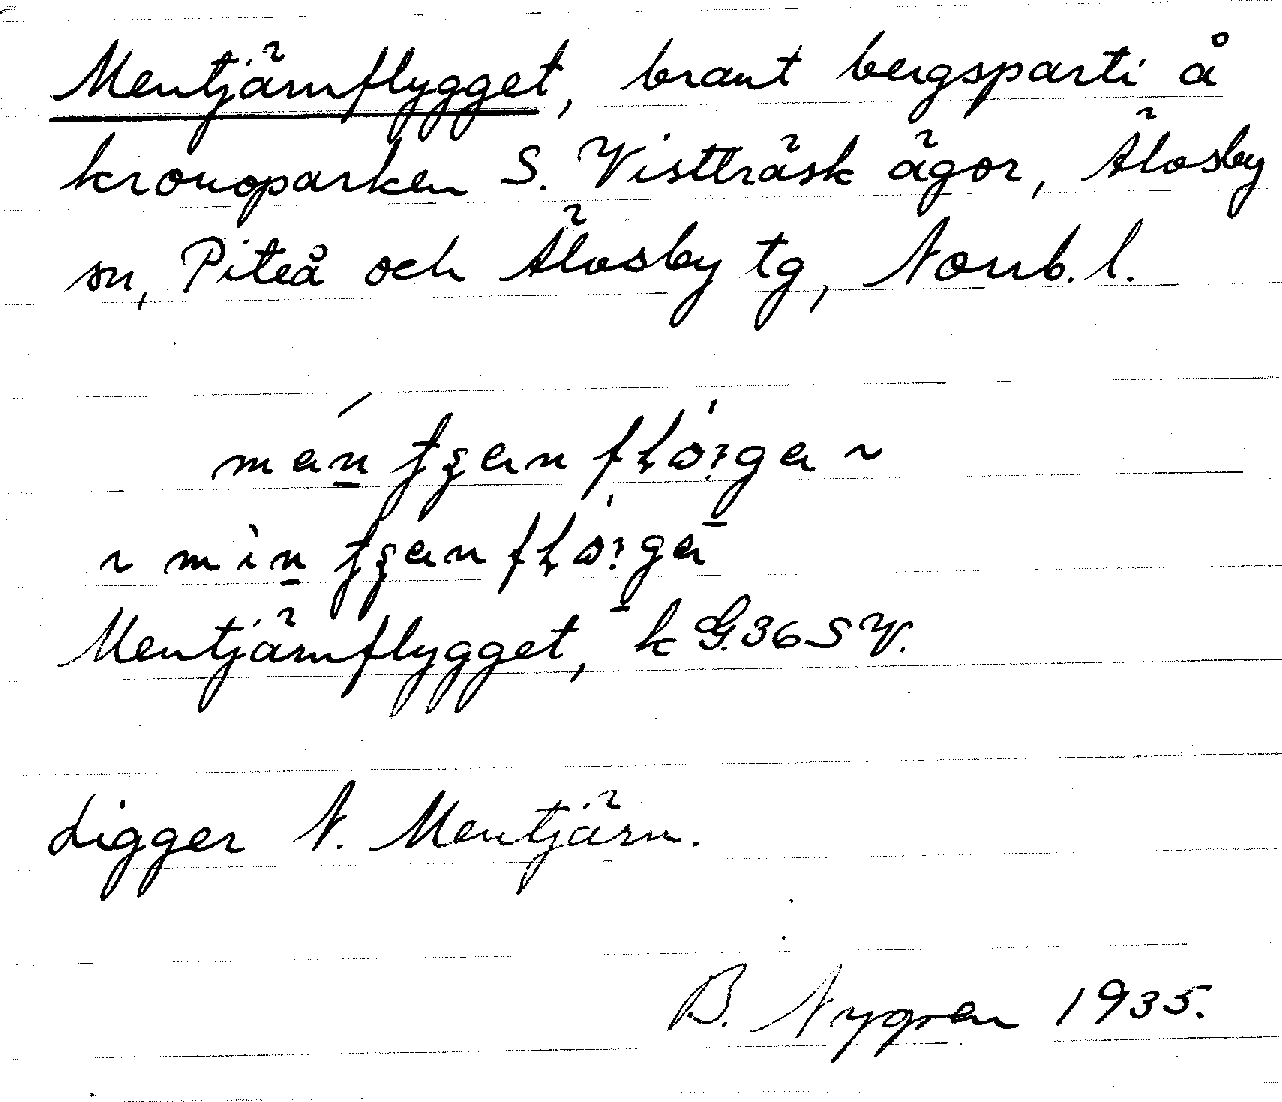 Mentjärnflygget, brant bergsparti å
kronoparken S. Vistträsk ägor, Älvsby
sn, Piteå och Älvsby tg, Norrb. l.
Mentjärnflygget, k G.36 S V.
Ligger N. Mentjärn.
B. Nygren 1935.